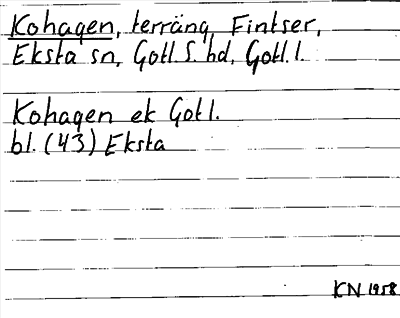 Kohagen, terräng, Fintser,
Eksta sn, Gotl. S. hd, Gotl. l.
Kohagen ek Gotl.
bl. (43) Eksta
KN 1958